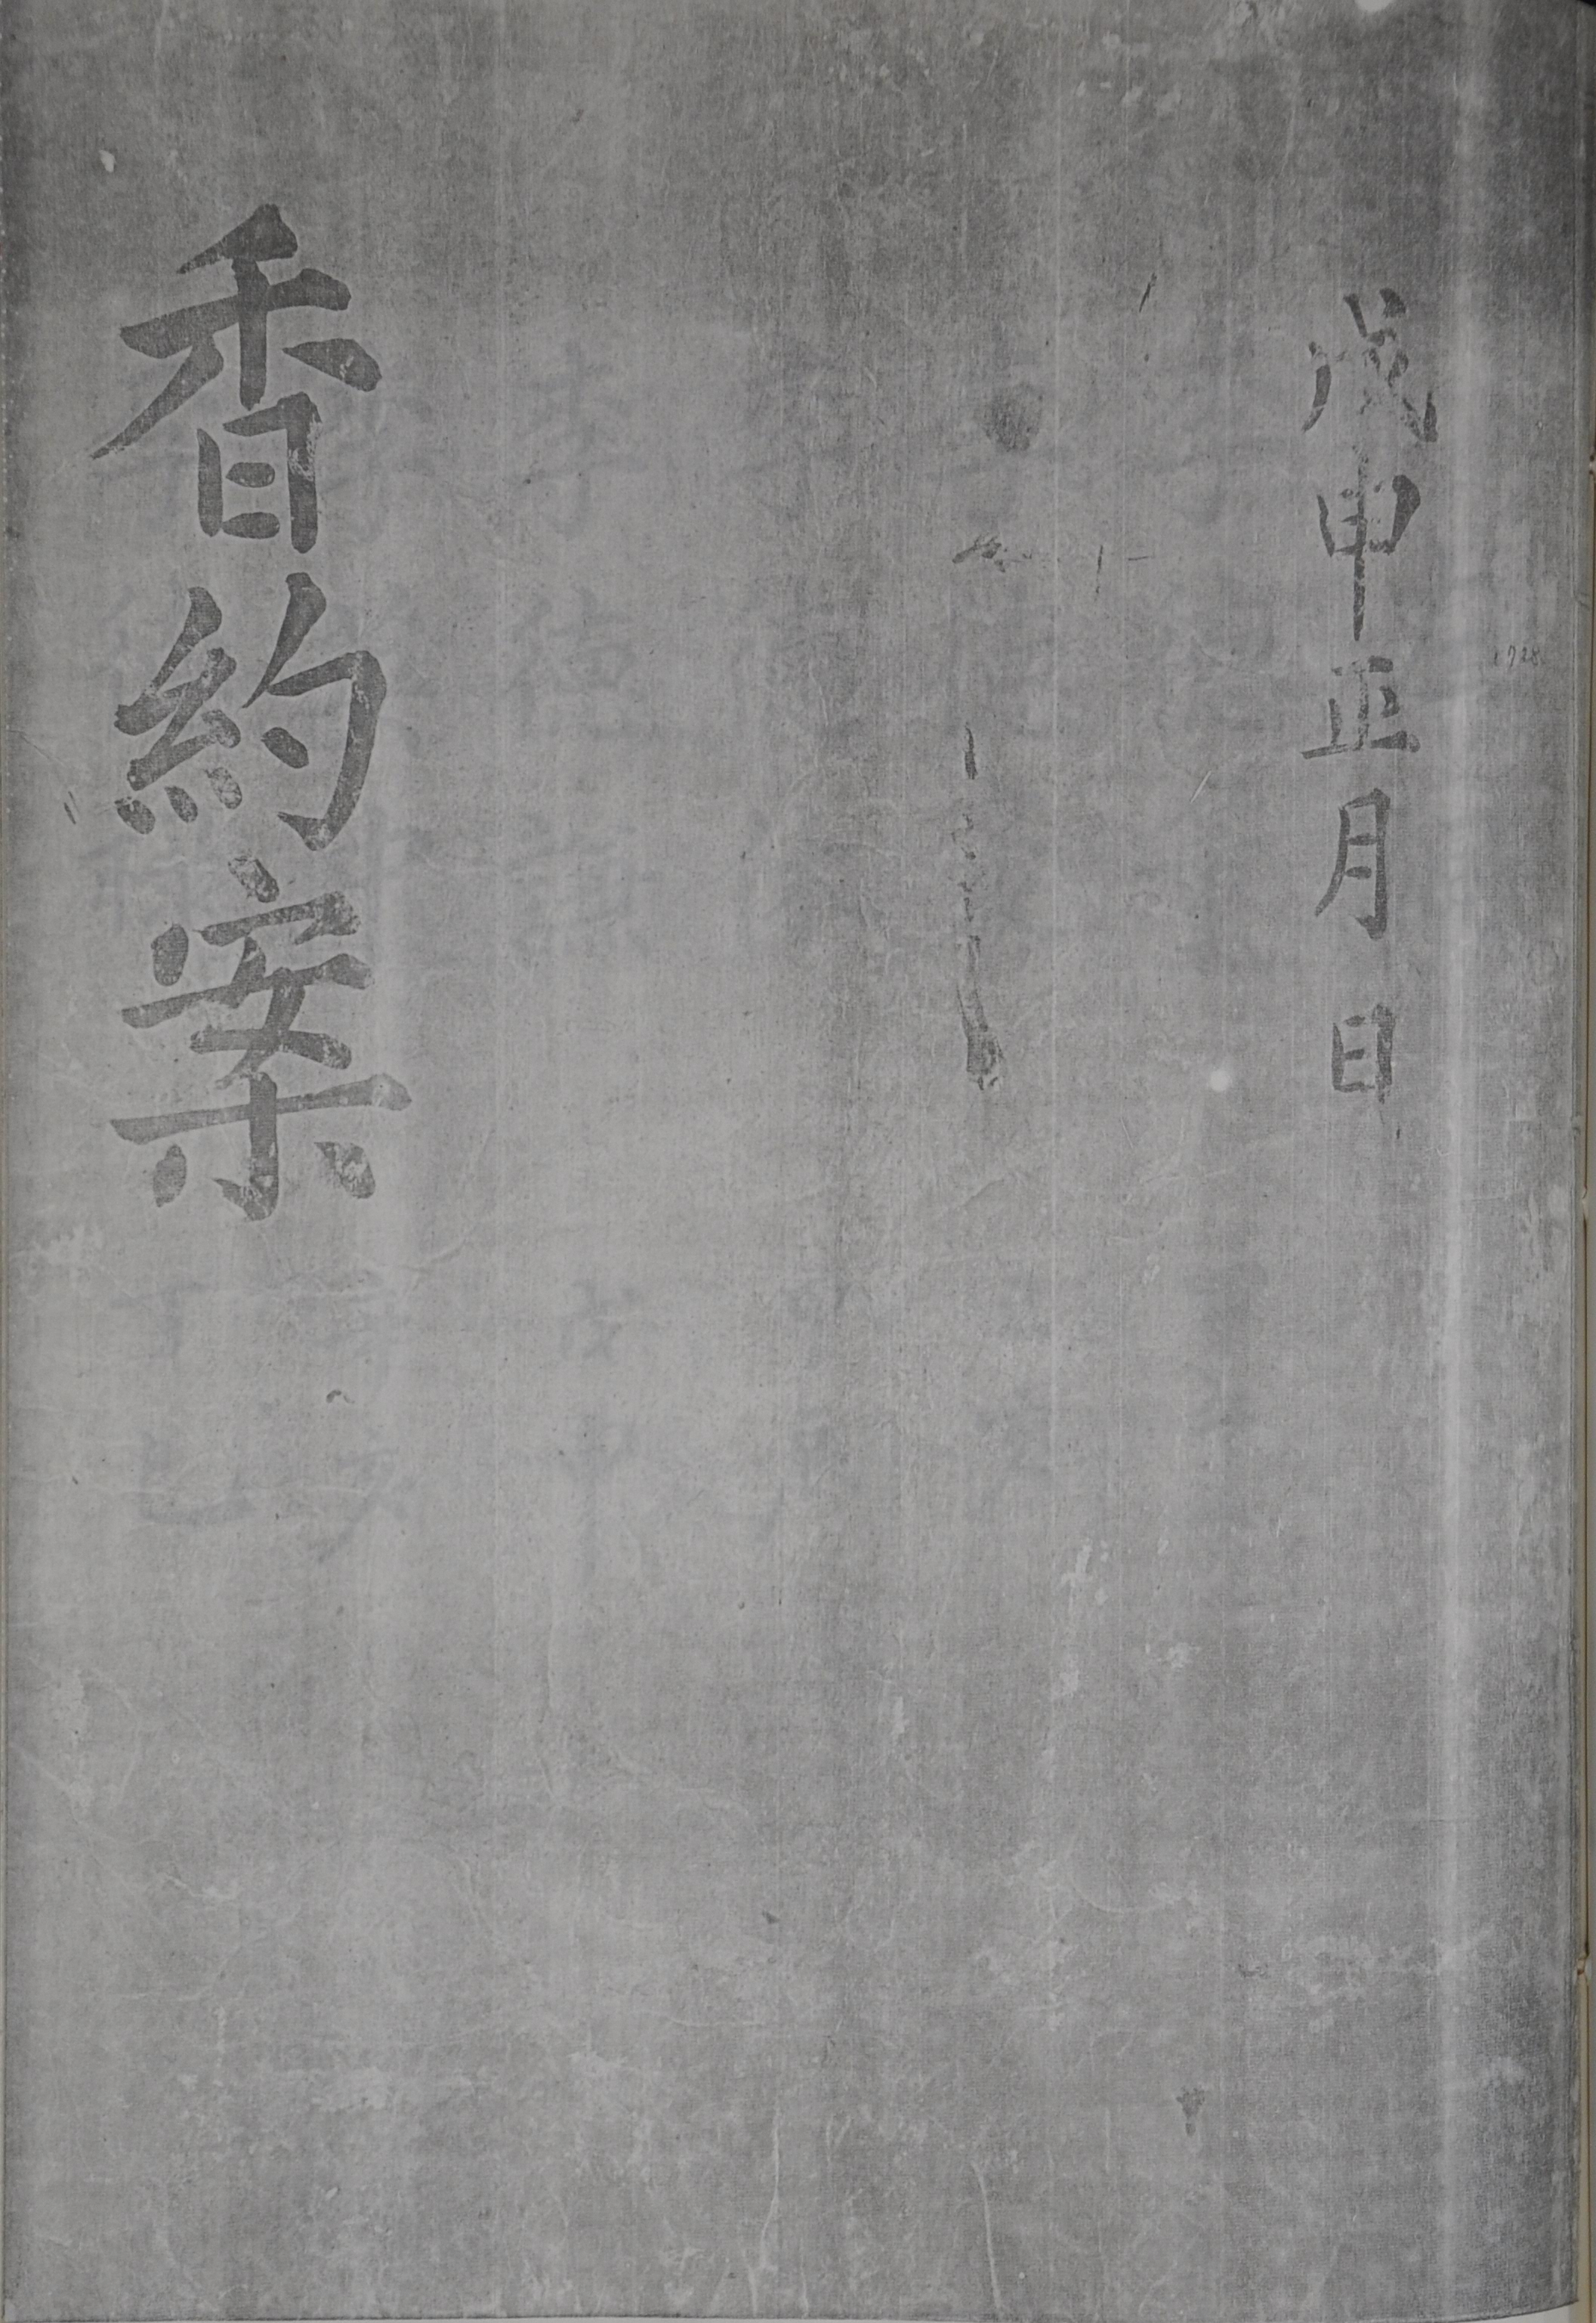 戊申正月日
香約案